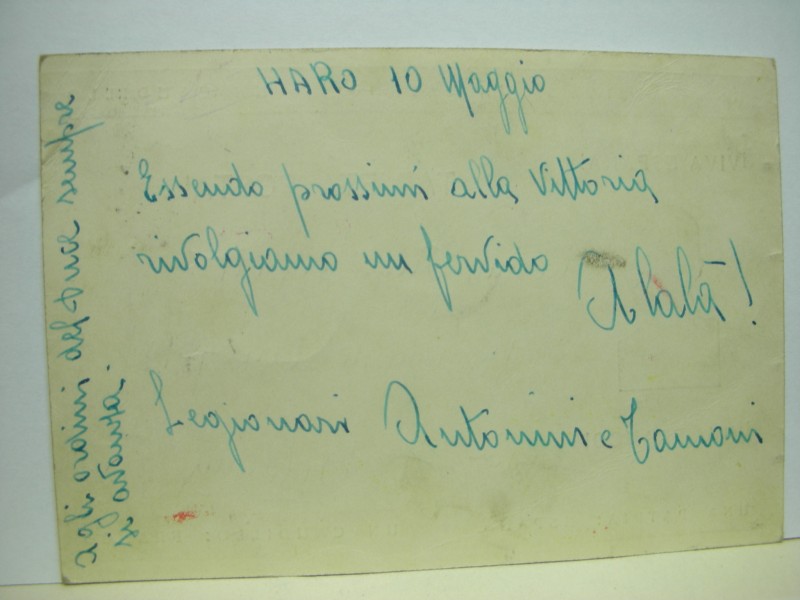 HARO 10 Maggio
Essendo prossimi alla Vittoria
rivolgiamo un fervido Alalà!
Legionari Antonini e Tamoni
Agli ordini del Duce sempre
si avanza.